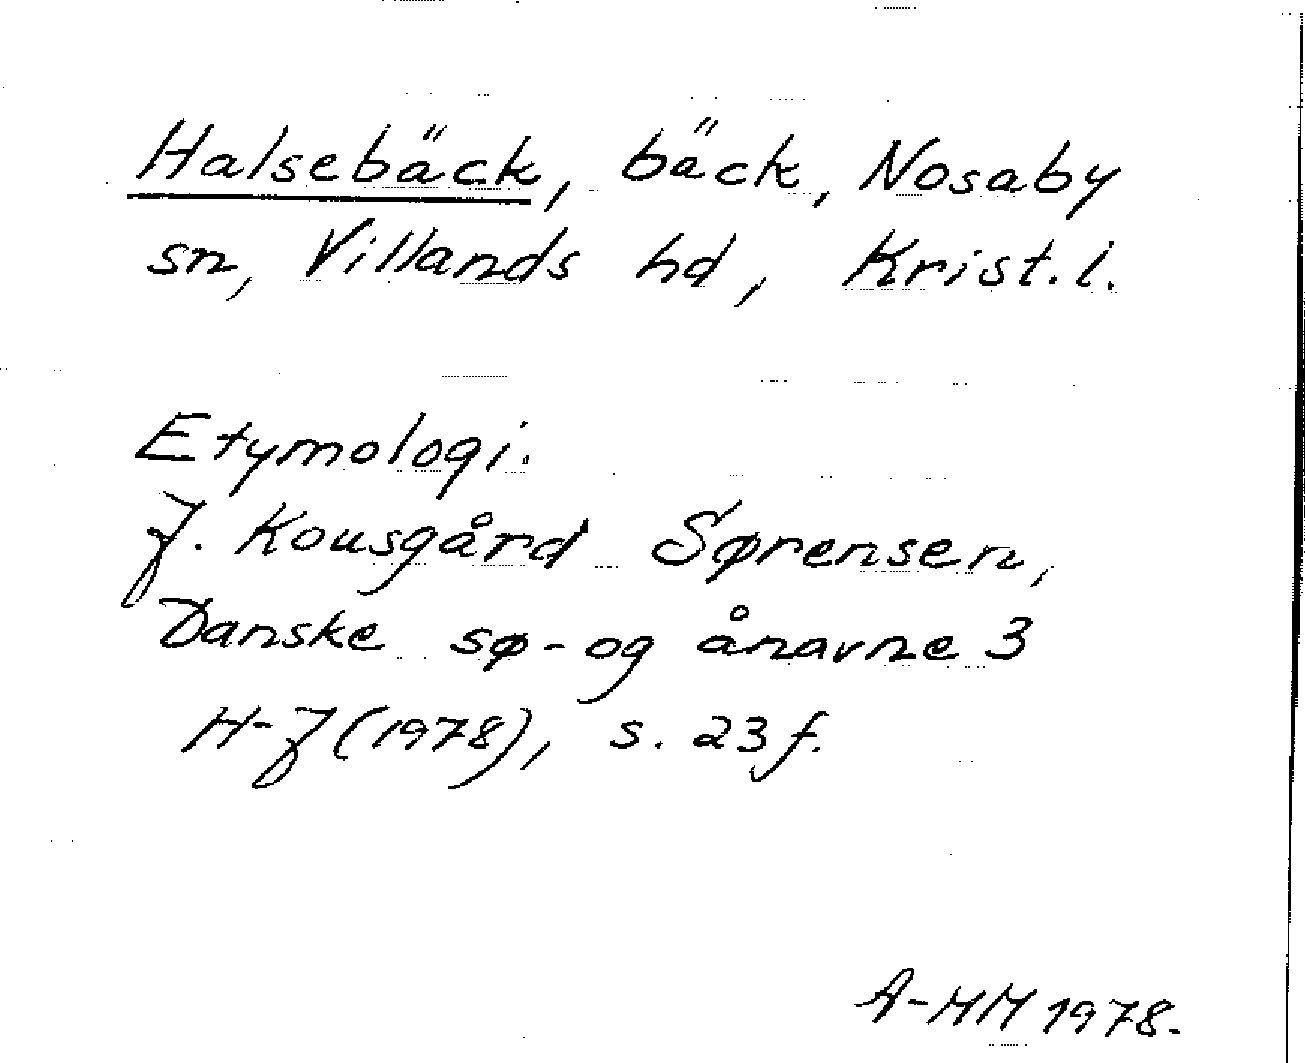 Halsebäck, bäck, Nosaby
sn, Villands hd, Krist. l.
Etymologi.
J. Kousgård Sørensen,
Danske sø- og ånavne 3
H-J (1978), s. 23 f.
A-MM 1978.